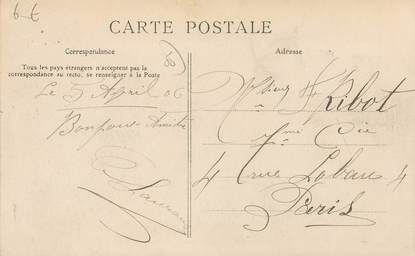 6 €
CARTE POSTALE
Correspondance
Adresse
Tous les pays étrangers n'acceptent pas la
correspondance au recto, se renseigner à la Poste
Le 5 April 06
Ribot
Bonjour Amitié
Cie
4 rue Lobau 4
Paris